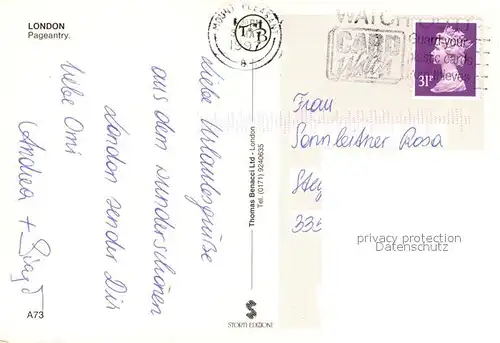 LONDON
Pageantry.
liebe Urlaubsgrüße
aus dem wunderschönen
London sendet Dir
liebe Omi
Andrea +
A73
Thomas Benacci Ltd - London
Tel. (0171) 9240635
STORTI EDIZIONI
MOUNT PLEASANT
TB
WATCH
CARD
Watch
Guard your
plastic cards
thieves
31P
Frau
Sonnleitner Rosa
Steg
335
privacy protection
Datenschutz